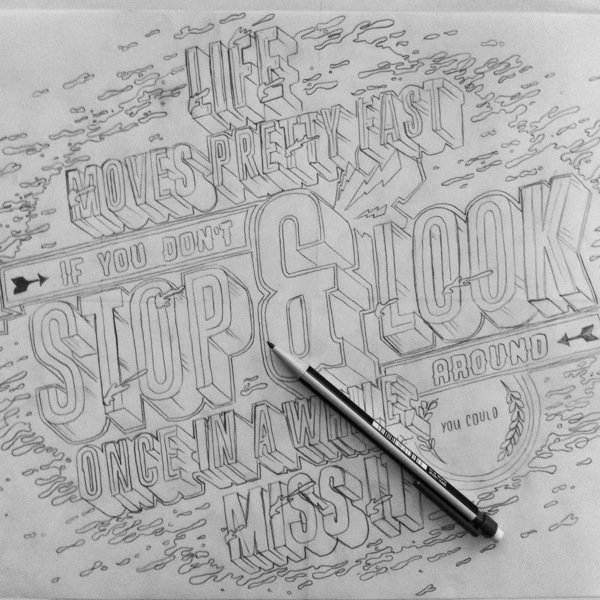 LIFE
MOVES PRETTY FAST
IF YOU DON'T
STOP & LOOK
AROUND
ONCE IN A WHILE,
YOU COULD
MISS IT